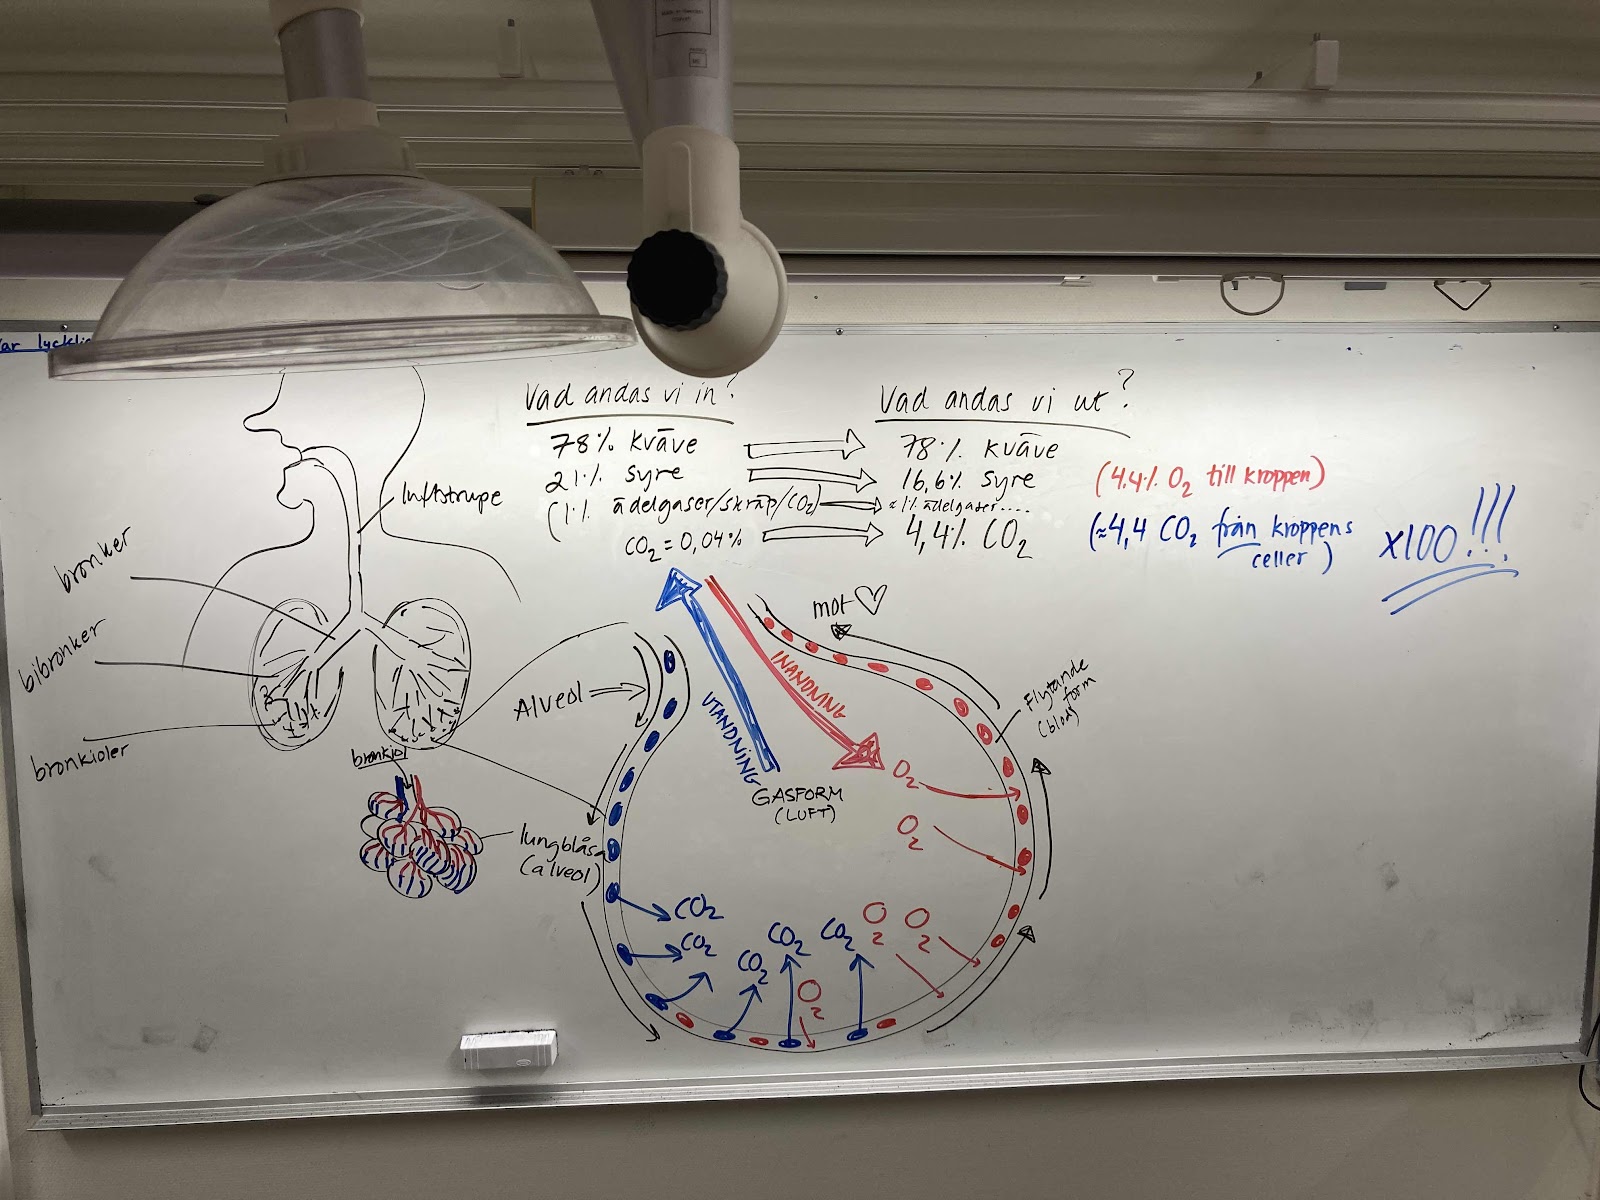 Var lycklig
Vad andas vi in?
78% kväve
21% syre
(1% ädelgaser/skräp/CO2)
CO2 = 0,04%
Vad andas vi ut?
78% kväve
16,6% syre
≈1% ädelgaser....
4,4% CO2
(4.4% O2 till kroppen)
(≈4,4 CO2 från kroppens
celler)
x100!!!
luftstrupe
bronker
bibronker
bronkioler
bronkiol
lungblåsa
(alveol)
Alveol
UTANDNING
INANDNING
GASFORM
(LUFT)
mot
Flytande
form
(blod)
O2
O2
O2
O2
O2
CO2
CO2
CO2
CO2
CO2